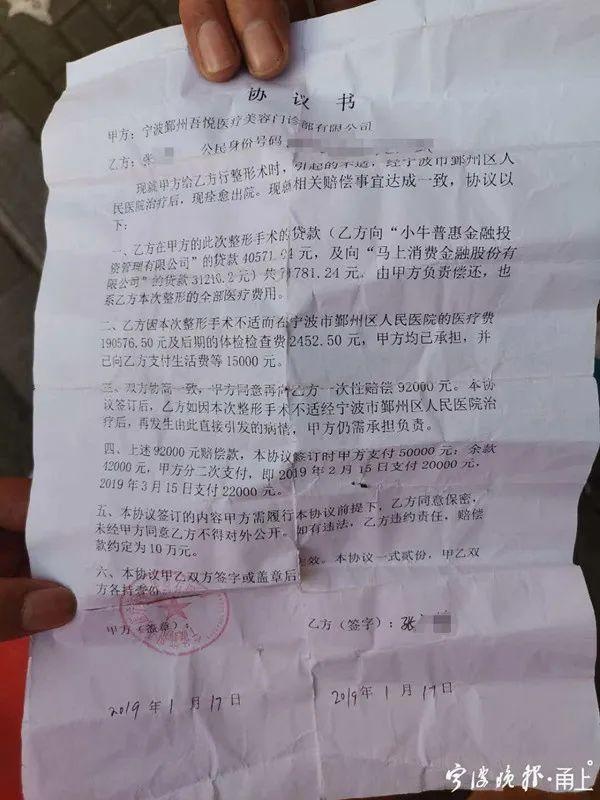 协议书
甲方：宁波鄞州吾悦医疗美容门诊部有限公司
乙方：张 公民身份号码：
现就甲方给乙方行整形术时，引起的不适，经宁波市鄞州区人
民医院治疗后，现痊愈出院。现就相关赔偿事宜达成一致，协议以
下：
一、乙方在甲方的此次整形手术的贷款（乙方向“小牛普惠金融投
资管理有限公司”的贷款40571.04元，及向“马上消费金融股份有
限公司”的贷款31210.2元）共71781.24元。由甲方负责偿还，也
系乙方本次整形的全部医疗费用。
二、乙方因本次整形手术不适而在宁波市鄞州区人民医院的医疗费
190576.50元及后期的体检检查费2452.50元，甲方均已承担，并
已向乙方支付生活费等15000元。
三、双方协商一致，甲方同意再向乙方一次性赔偿92000元。本协
议签订后，乙方如因本次整形手术不适经宁波市鄞州区人民医院治
疗后，再发生由此直接引发的病情，甲方仍需承担负责。
四、上述92000元赔偿款，本协议签订时甲方支付50000元；余款
42000元，甲方分二次支付，即2019年2月15日支付20000元，
2019年3月15日支付22000元。
五、本协议签订的内容甲方需履行本协议前提下，乙方同意保密，
未经甲方同意乙方不得对外公开。如有违法，乙方违约责任，赔偿
款约定为10万元。
六、本协议甲乙双方签字或盖章后生效。本协议一式贰份，甲乙双
方各持壹份。
甲方（签章）： 乙方（签字）：张
2019年1月17日 2019年1月17日
宁波晚报·甬上